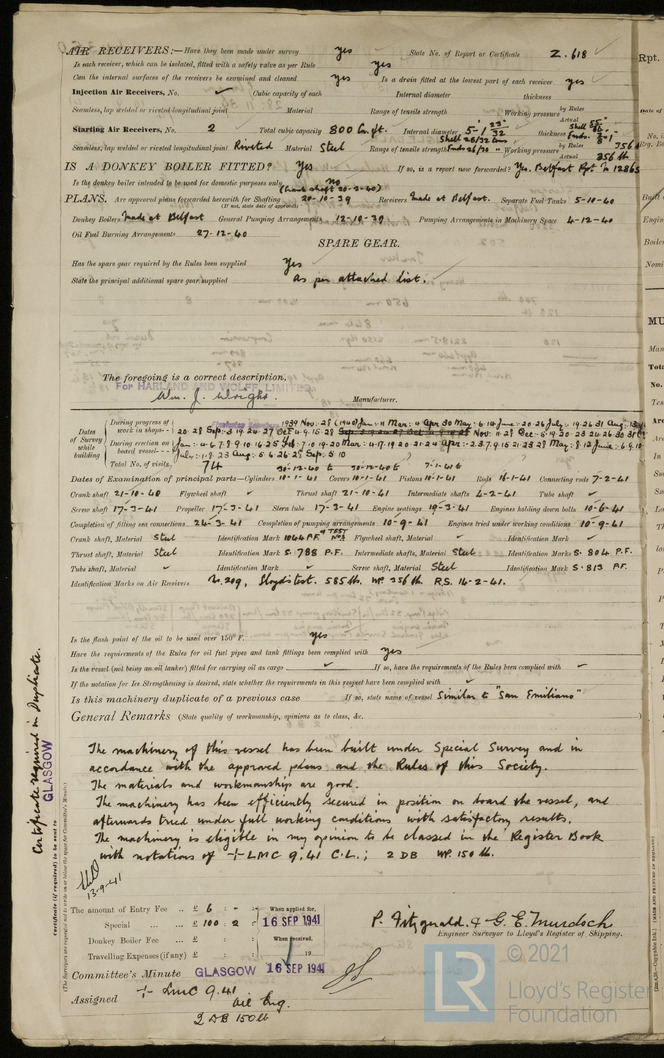 AIR RECEIVERS:—Have they been made under survey yes State No. of Report or Certificate Z.618
Is each receiver, which can be isolated, fitted with a safety valve as per Rule yes
Can the internal surfaces of the receivers be examined and cleaned yes Is a drain fitted at the lowest part of each receiver yes
Injection Air Receivers, No. ✓ Cubic capacity of each Internal diameter thickness
Seamless, lap welded or riveted longitudinal joint Material Range of tensile strength Working pressure by Rules Actual
Starting Air Receivers, No. 2 Total cubic capacity 800 Cu.ft. Internal diameter thickness
Seamless, lap welded or riveted longitudinal joint Riveted Material Steel Range of tensile strength Shell 28/32 tons Ends 26/30 Working pressure by Rules Actual 356 lb
IS A DONKEY BOILER FITTED? Yes If so, is a report now forwarded? Yes. Belfast Rpt No 12865
Is the donkey boiler intended to be used for domestic purposes only No
PLANS. Are approved plans forwarded herewith for Shafting (Crank shaft 20-2-40) 20-10-39 Receivers Made at Belfast. Separate Fuel Tanks 5-10-40
(If not, state date of approval)
Donkey Boilers Made at Belfast General Pumping Arrangements 12-10-39 Pumping Arrangements in Machinery Space 4-12-40
Oil Fuel Burning Arrangements 27-12-40
SPARE GEAR.
Has the spare gear required by the Rules been supplied Yes
State the principal additional spare gear supplied as per attached list.
The foregoing is a correct description,
For HARLAND AND WOLFF LIMITED
Wm. J. Wright. Manufacturer.
Dates of Survey while building
During progress of work in shops - -
During erection on board vessel - - -
Total No. of visits 74
Dates of Examination of principal parts—Cylinders 10-1-41 Covers 10-1-41 Pistons 10-1-41 Rods 16-1-41 Connecting rods 7-2-41
Crank shaft 21-10-40 Flywheel shaft ✓ Thrust shaft 21-10-41 Intermediate shafts 4-2-41 Tube shaft ✓
Screw shaft 17-3-41 Propeller 17-3-41 Stern tube 17-3-41 Engine seatings 19-3-41 Engines holding down bolts 10-6-41
Completion of fitting sea connections 24-3-41 Completion of pumping arrangements 10-9-41 Engines tried under working conditions 10-9-41
Crank shaft, Material Steel Identification Mark 1044 P.F. Flywheel shaft, Material ✓ Identification Mark ✓
Thrust shaft, Material Steel Identification Mark S. 788 P.F. Intermediate shafts, Material Steel Identification Marks S. 804 P.F.
Tube shaft, Material ✓ Identification Mark ✓ Screw shaft, Material Steel Identification Mark S. 813 P.F.
Identification Marks on Air Receivers No. 209, Lloyds test. 585 lb. WP. 356 lb. R.S. 14-2-41.
Is the flash point of the oil to be used over 150° F. yes
Have the requirements of the Rules for oil fuel pipes and tank fittings been complied with yes
Is the vessel (not being an oil tanker) fitted for carrying oil as cargo ✓ If so, have the requirements of the Rules been complied with ✓
If the notation for Ice Strengthening is desired, state whether the requirements in this respect have been complied with ✓
Is this machinery duplicate of a previous case If so, state name of vessel Similar to "San Emiliano"
General Remarks (State quality of workmanship, opinions as to class, &c.
The machinery of this vessel has been built under Special Survey and in
accordance with the approved plans and the Rules of this Society.
The materials and workmanship are good.
The machinery has been efficiently secured in position on board the vessel, and
afterwards tried under full working conditions with satisfactory results.
The machinery is eligible in my opinion to be classed in the Register Book
with notations of + LMC 9,41 C.L.; 2 DB WP. 150 lb.
13-9-41
Certificate required in Duplicate.
GLASGOW
Certificate (if required) to be sent to
The amount of Entry Fee .. £ 6 : - : When applied for,
Special ... ... £ 100 : 2 : 16 SEP 1941
Donkey Boiler Fee ... £ : : When received,
Travelling Expenses (if any) £ : : 19
P. Fitzgerald. & G. E. Murdoch
Engineer Surveyor to Lloyd's Register of Shipping.
Committee's Minute GLASGOW 16 SEP 1941
Assigned + LMC 9.41
Oil Eng.
2 DB 150 lb
© 2021
LR Lloyd's Register
Foundation
Rpt.